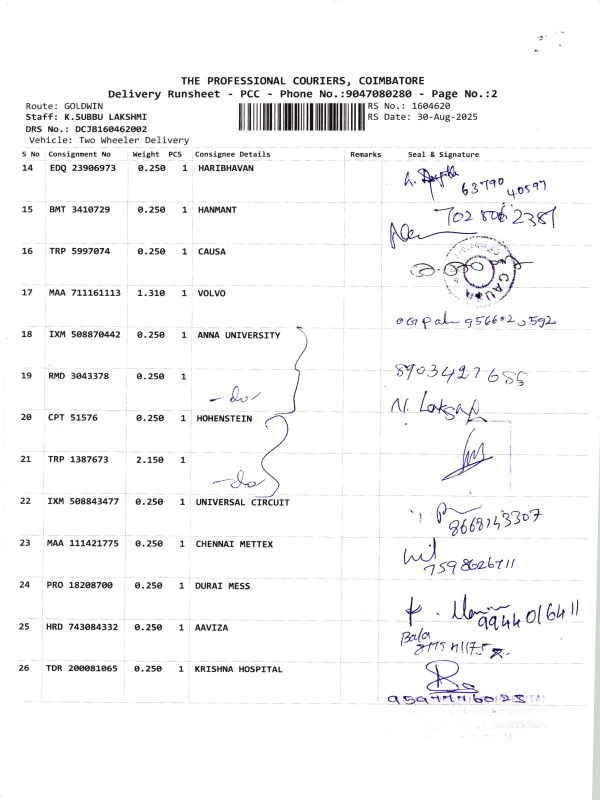 THE PROFESSIONAL COURIERS, COIMBATORE
Delivery Runsheet - PCC - Phone No.:9047080280 - Page No.:2
Route: GOLDWIN
Staff: K.SUBBU LAKSHMI
DRS No.: DCJB160462002
Vehicle: Two Wheeler Delivery
RS No.: 1604620
RS Date: 30-Aug-2025
S No Consignment No Weight PCS Consignee Details Remarks Seal & Signature
14 EDQ 23906973 0.250 1 HARIBHAVAN 63790 40597
15 BMT 3410729 0.250 1 HANMANT 702 806 2387
16 TRP 5997074 0.250 1 CAUSA CAUSA
17 MAA 711161113 1.310 1 VOLVO 956620592
18 IXM 508870442 0.250 1 ANNA UNIVERSITY
19 RMD 3043378 0.250 1 -do- 8903427685
20 CPT 51576 0.250 1 HOHENSTEIN
21 TRP 1387673 2.150 1 -do-
22 IXM 508843477 0.250 1 UNIVERSAL CIRCUIT 8668143307
23 MAA 111421775 0.250 1 CHENNAI METTEX 7598026711
24 PRO 18208700 0.250 1 DURAI MESS 9944016411
25 HRD 743084332 0.250 1 AAVIZA Bala
26 TDR 200081065 0.250 1 KRISHNA HOSPITAL 9597776025